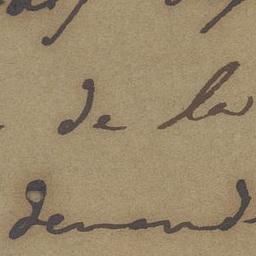 de la
demand